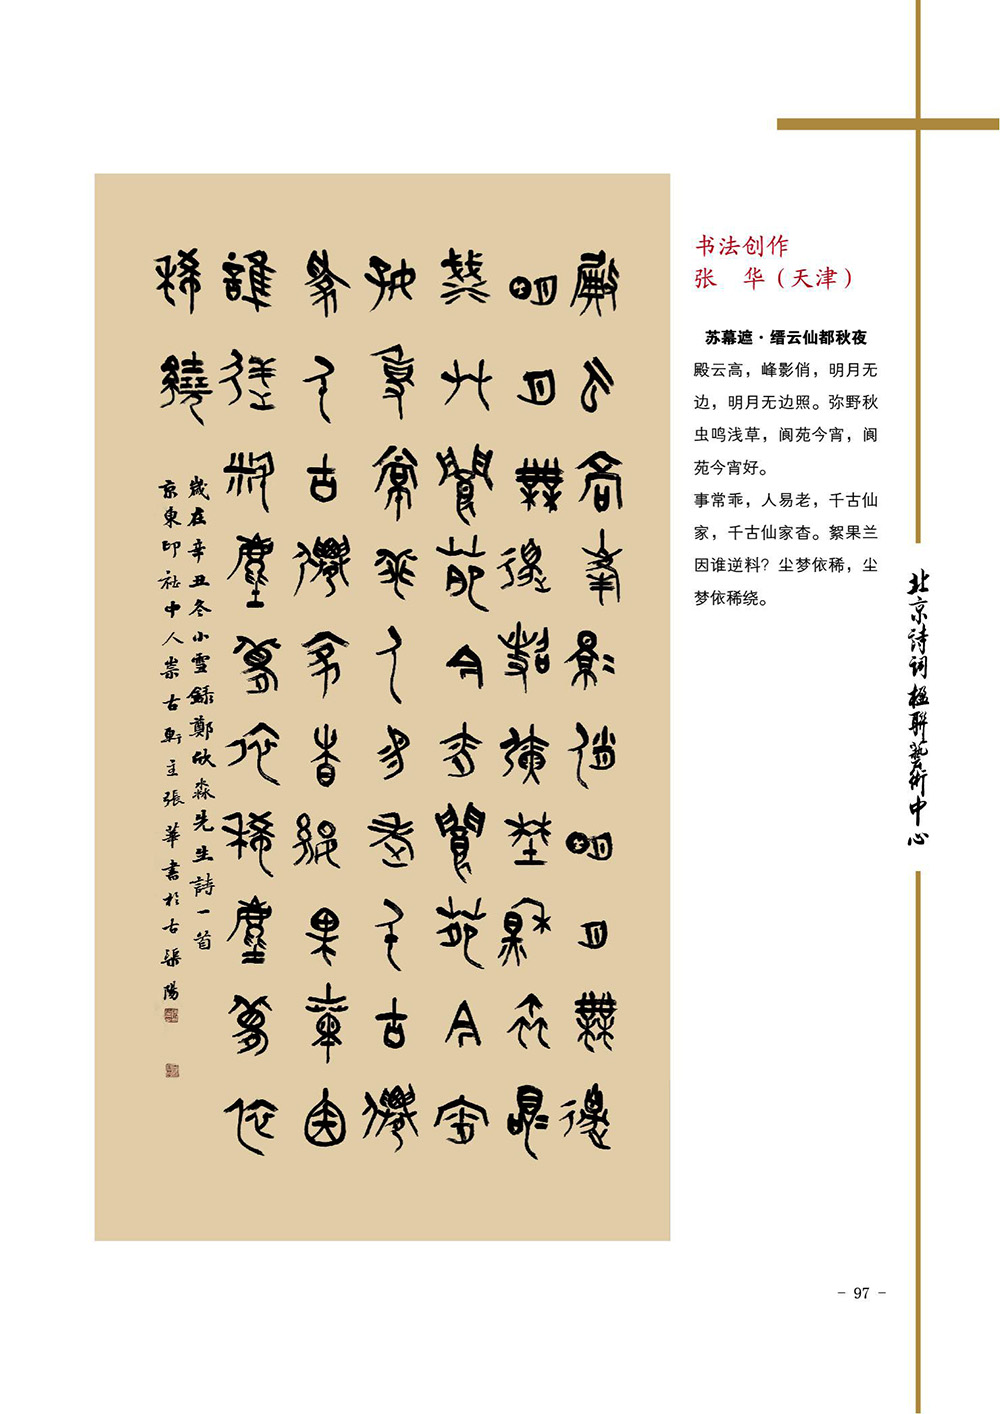 书法创作
张　华（天津）
苏幕遮·缙云仙都秋夜
殿云高，峰影俏，明月无
边，明月无边照。弥野秋
虫鸣浅草，阆苑今宵，阆
苑今宵好。
事常乖，人易老，千古仙
家，千古仙家杳。絮果兰
因谁逆料？尘梦依稀，尘
梦依稀绕。
殿云高峰影俏明月無邊
明月無邊照彌野秋蟲鳴
淺艸閬苑今宵閬苑今宵
好事常乖人易老千古僊
家千古僊家杳絮果蘭因
誰逆料塵夢依稀塵夢依
稀繞
歲在辛丑冬小雪錄鄭欣淼先生詩一首
京東印社中人崇古軒主張華書於古渠陽
北京诗词楹联艺術中心
- 97 -